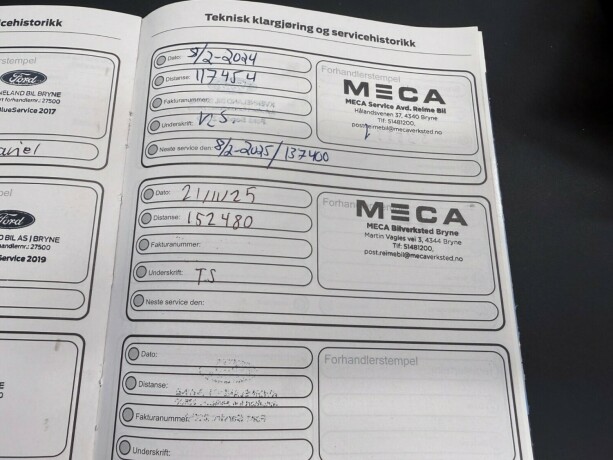 cehistorikk
rstempel
Ford
NELAND BIL BRYNE
rt forhandlernr.: 27500
BlueService 2017
pel
Ford
D BIL AS | BRYNE
handlernr.: 27500
Service 2019
Teknisk klargjøring og servicehistorikk
Dato: 8/2-2024
Distanse: 117454
Fakturanummer:
Underskrift:
Neste service den: 8/2-2025/137400
Forhandlerstempel
MECA
MECA Service Avd. Reime Bil
Hålandsvenen 37, 4340 Bryne
Tlf: 51481200,
post.reimebil@mecaverksted.no
Dato: 21/11/25
Distanse: 152480
Fakturanummer:
Underskrift: T.S
Neste service den:
Forhan
MECA
MECA Bilverksted Bryne
Martin Vagles vei 3, 4344 Bryne
Tlf: 51481200,
post.reimebil@mecaverksted.no
Dato:
Distanse:
Fakturanummer:
Underskrift:
Forhandlerstempel